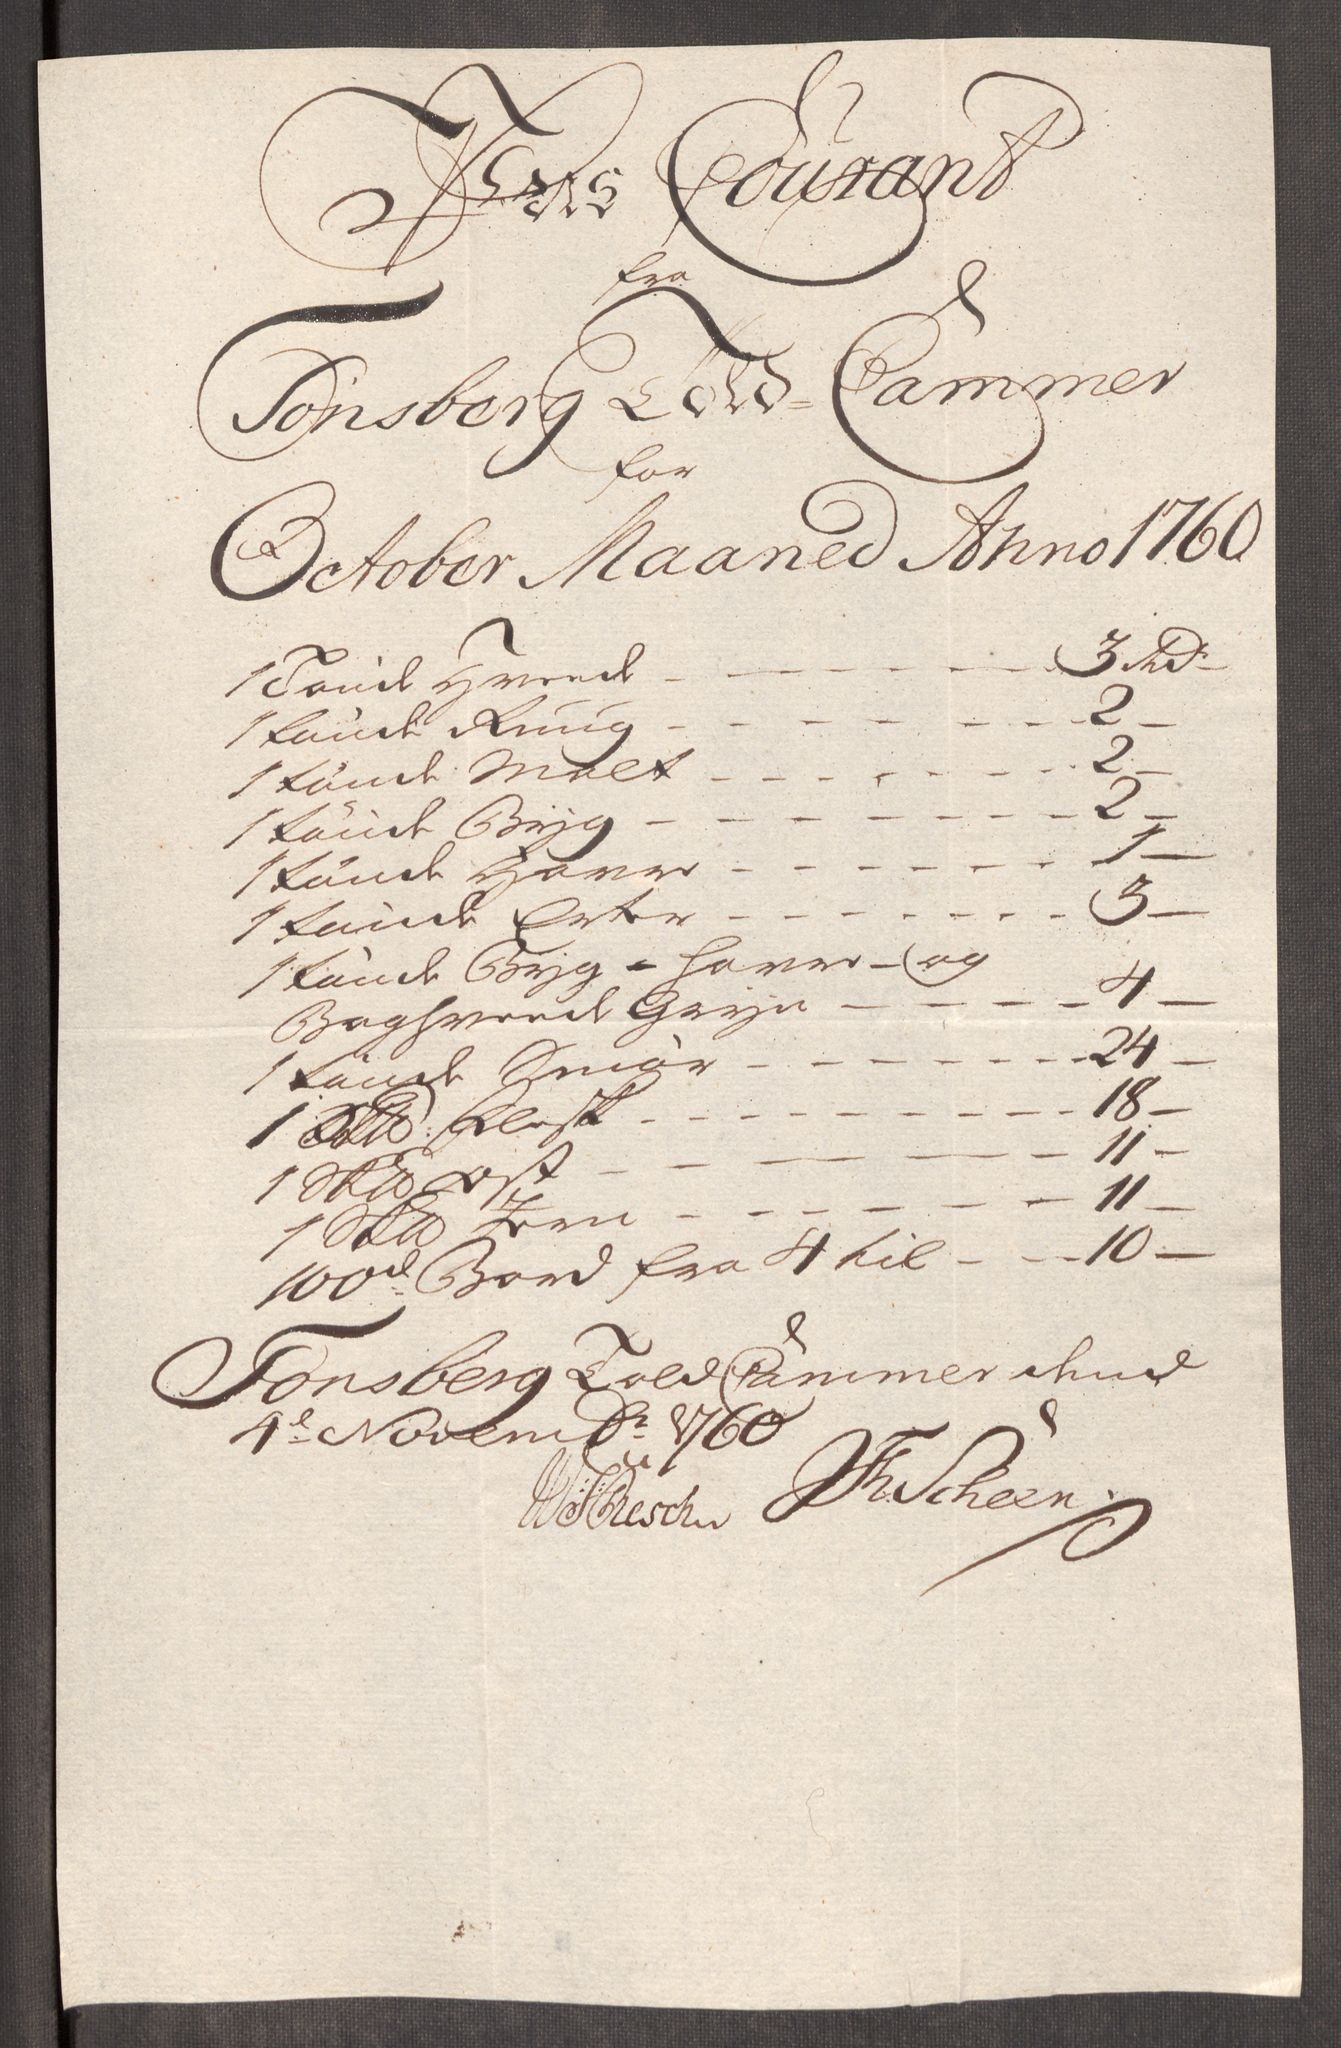 Priis Courant
fra
Tönsberg Told=Cammer
for
October Maaned Anno 1760
1 Tönde Hvede - - - 3 Rdr
1 tönde Rug - - - 2 -
1 tönde Malt - - - 2 -
1 tönde Byg - - - 2 -
1 tönde Havre - - - 1 -
1 tönde Erter - - - 3 -
1 tönde Byg - Havre - og
Boghvede Gryn - - - 4 -
1 tönde Smör - - - 24 -
1 Sk℔ Flesk - - - 18 -
1 Sk℔ ost - - - 11 -
1 Sk℔ Jern - - - 11 -
100d Bord fra 4 til - - - 10 -
Tonsberg Told Cammer dend
4d Novembr 1760
Th Scheen